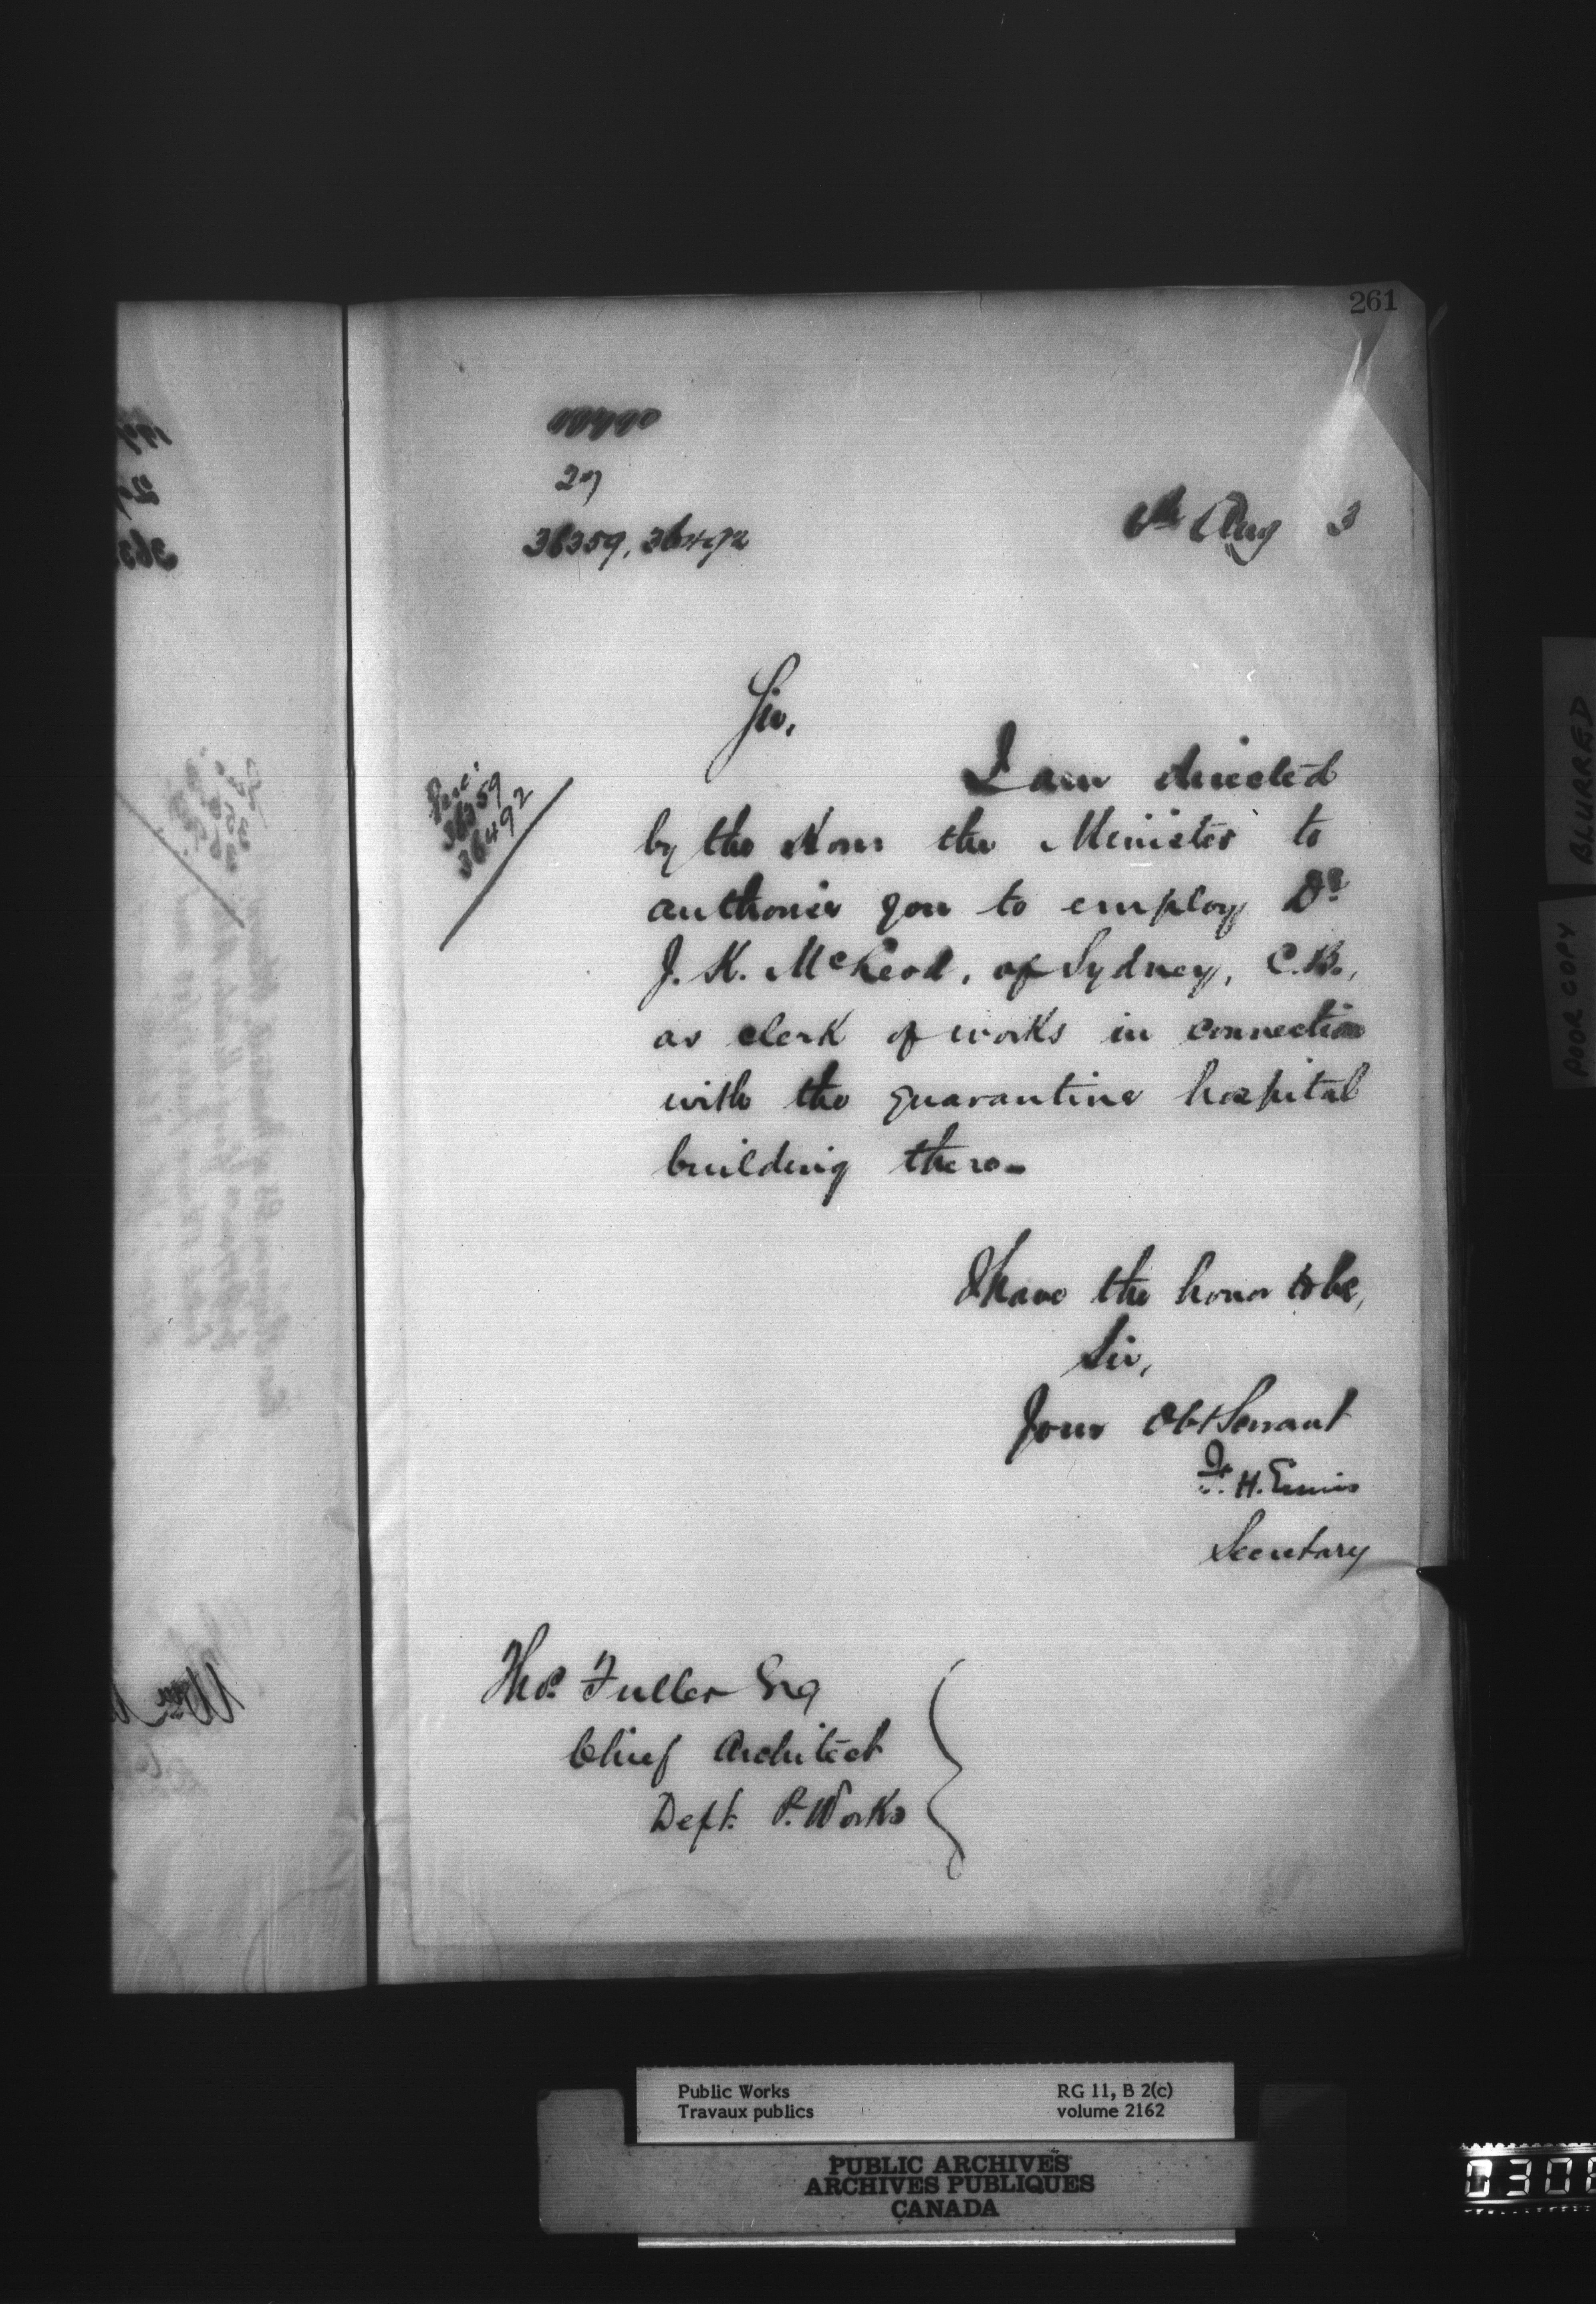 261
27
36359, 36492
6th Aug 3
Sir,
Rec:
36359
36492
I am directed
by the Hon: the Minister to
authorize you to employ Dr.
J. K. McLeod, of Sydney, C.B.,
as clerk of works in connection
with the quarantine hospital
building there.
I have the honor to be,
Sir,
Your Obt Servant
F. H. Ennis
Secretary
Thos. Fuller Esq
Chief Architect
Dept. P. Works
BLURRED
POOR COPY
Public Works
Travaux publics
RG 11, B 2(c)
volume 2162
PUBLIC ARCHIVES
ARCHIVES PUBLIQUES
CANADA